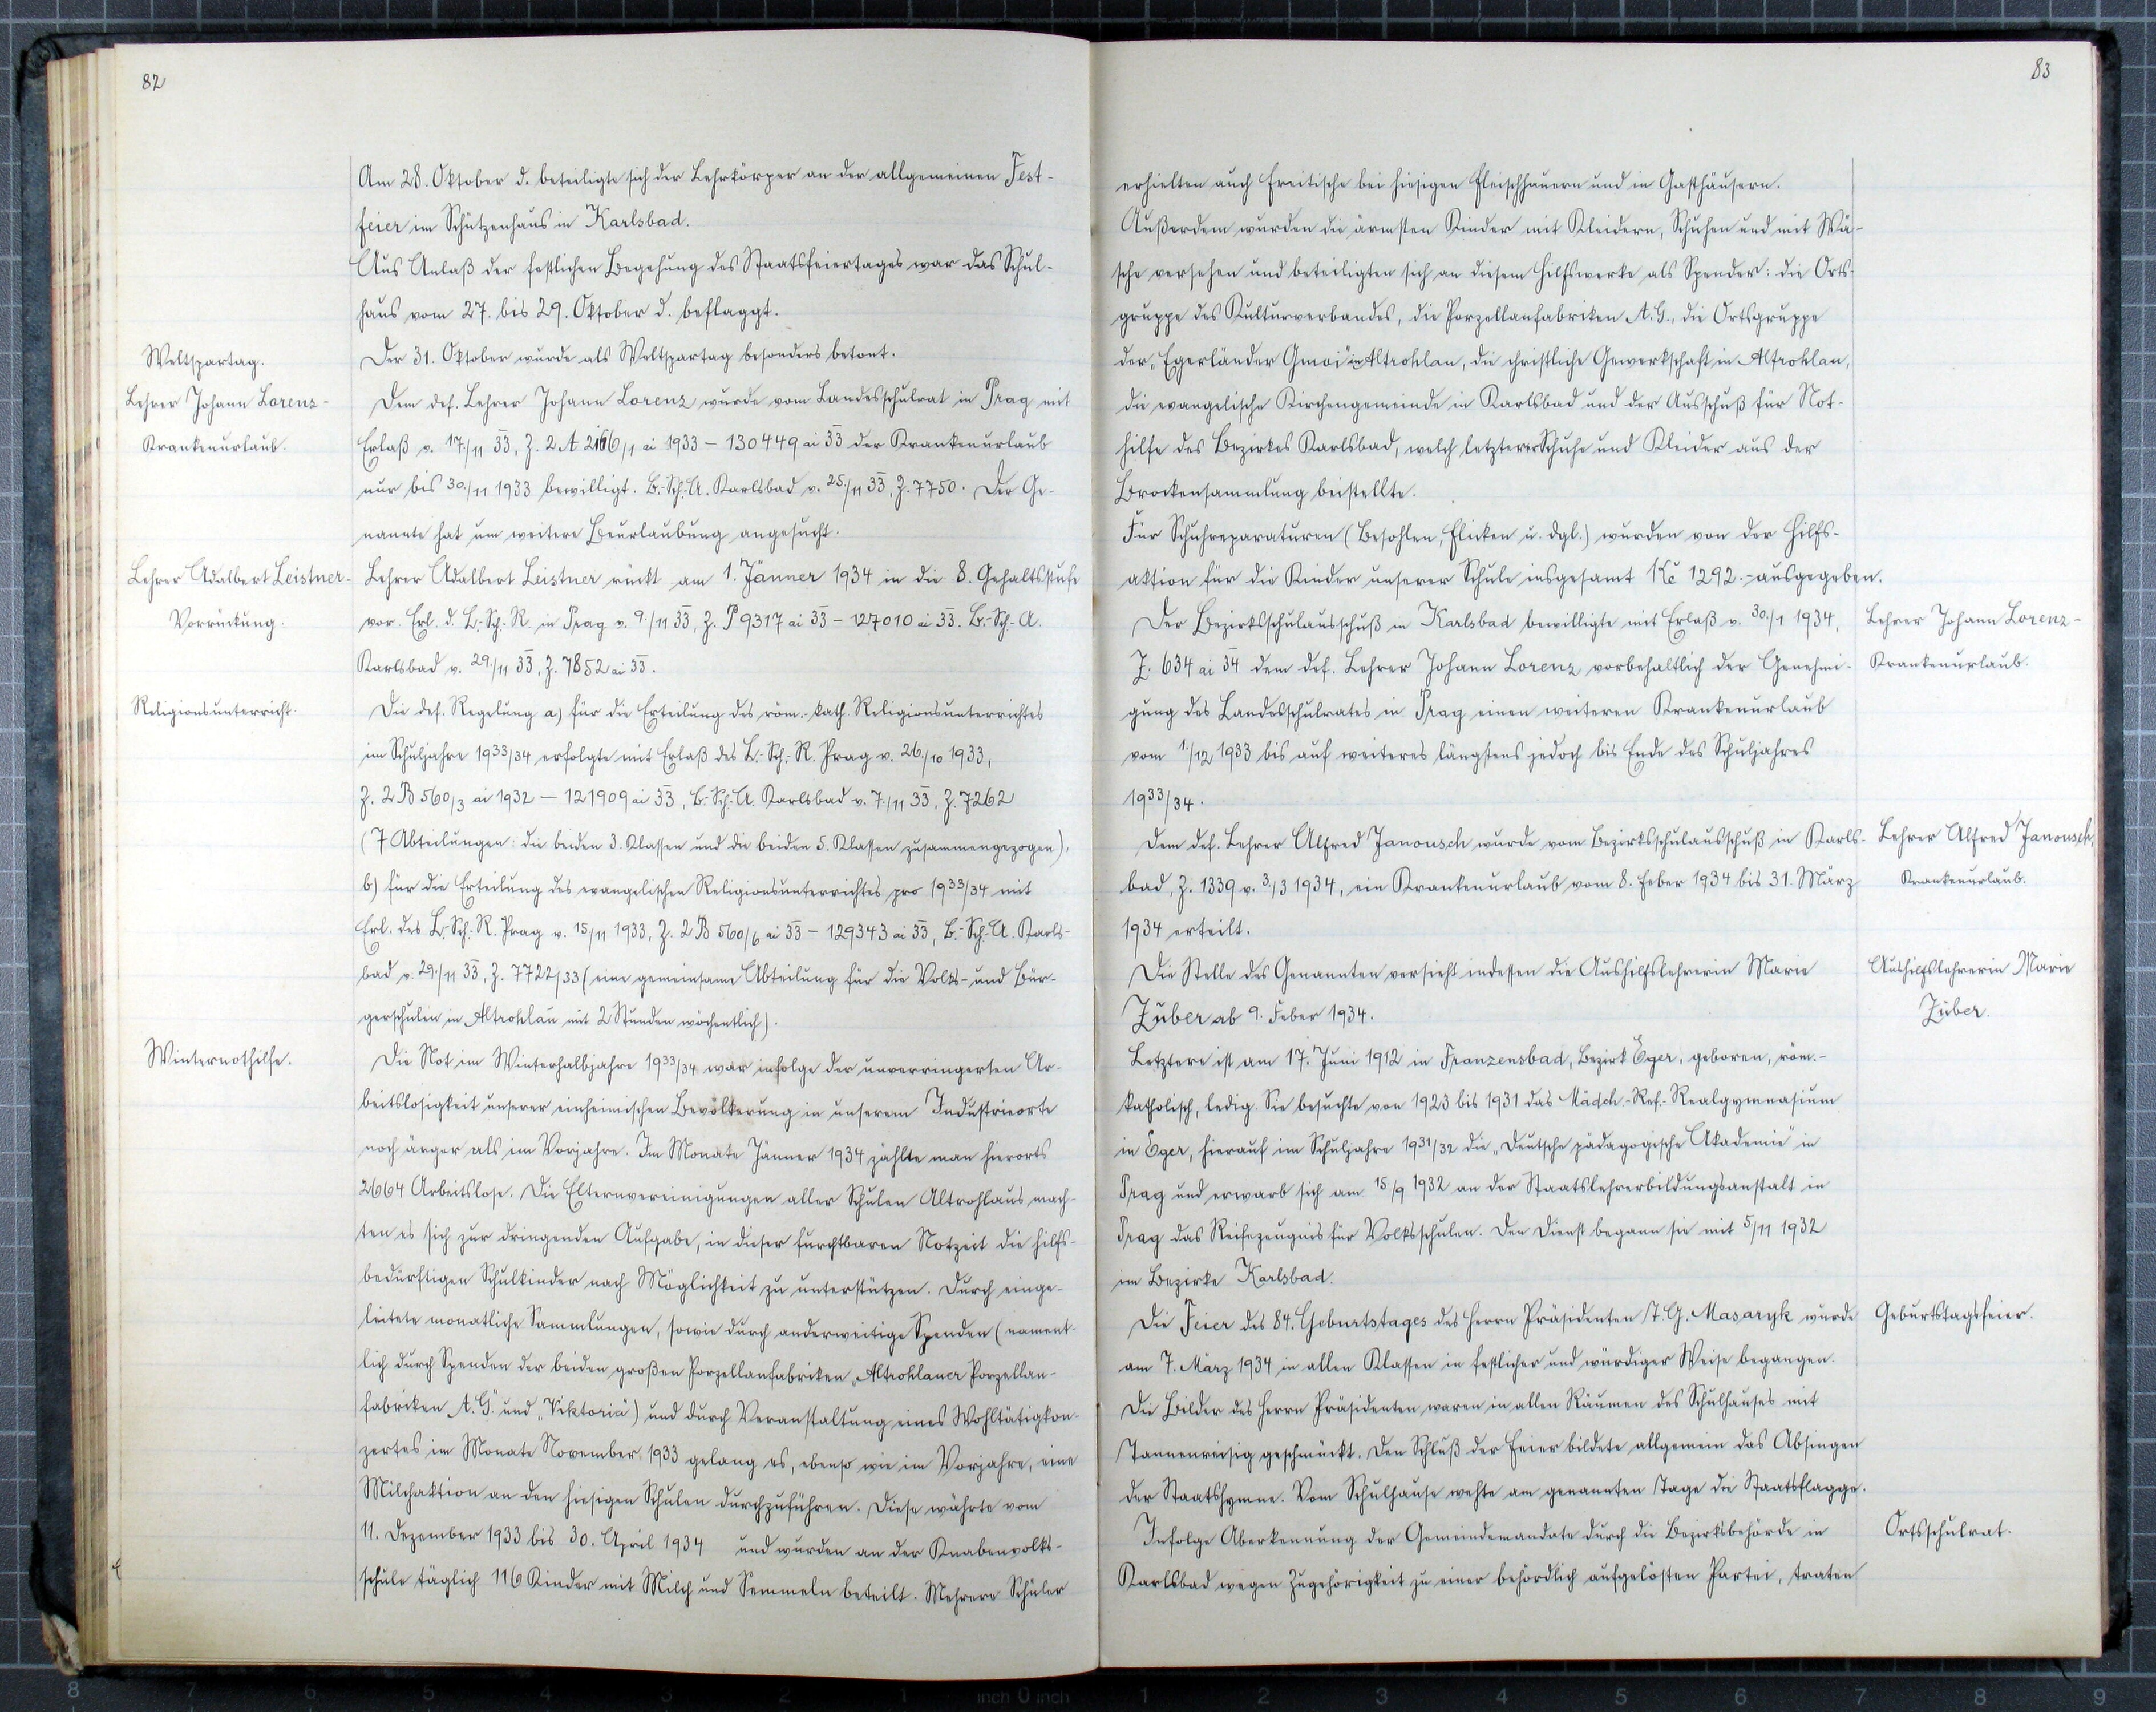 82
Am 28. Oktober d. beteiligte sich der Lehrkörper an der allgemeinen Fest-
feier im Schützenhaus in Karlsbad.
Aus Anlaß der festlichen Begehung des Staatsfeiertages war das Schul-
haus vom 27. bis 29. Oktober d. beflaggt.
Weltspartag.
Der 31. Oktober wurde als Weltspartag besonders betont.
Lehrer Johann Lorenz-
Krankenurlaub.
Dem def. Lehrer Johann Lorenz wurde vom Landesschulrat in Prag mit
Erlaß v. 17./11 33, Z. 2 A 2166/1 ai 1933 – 130449 ai 33 der Krankenurlaub
nur bis 30./11 1933 bewilligt. B.-Sch.-A. Karlsbad v. 25./11 33, Z. 7750. Der Ge-
nannte hat um weitere Beurlaubung angesucht.
Lehrer Adalbert Leistner-
Vorrückung.
Lehrer Adalbert Leistner rückt am 1. Jänner 1934 in die 8. Gehaltsstufe
vor. Erl. d. L.-Sch.-R. in Prag v. 9./11 33, Z. P 9317 ai 33 – 127010 ai 33. B.-Sch.-A.
Karlsbad v. 29./11 33, Z. 7852 ai 33.
Religionsunterricht.
Die def. Regelung a) für die Erteilung des röm.-kath. Religionsunterrichtes
im Schuljahre 1933/34 erfolgte mit Erlaß des L.-Sch.-R. Prag v. 26./10 1933,
Z. 2 B 560/3 ai 1932 – 121909 ai 33, B.-Sch.-A. Karlsbad v. 7./11 33, Z. 7262
(7 Abteilungen: die beiden 3. Klassen und die beiden 5. Klassen zusammengezogen),
b) für die Erteilung des evangelischen Religionsunterrichtes pro 1933/34 mit
Erl. des L.-Sch.-R. Prag v. 15/11 1933, Z. 2 B 560/6 ai 33 – 129343 ai 33, B.-Sch.-A. Karls-
bad v. 29./11 33, Z. 7722/33 (eine gemeinsame Abteilung für die Volks- und Bür-
gerschulen in Altrohlau mit 2 Stunden wöchentlich).
Winternothilfe.
Die Not im Winterhalbjahre 1933/34 war infolge der unverringerten Ar-
beitslosigkeit unserer einheimischen Bevölkerung in unserem Industrieorte
noch ärger als im Vorjahre. Im Monate Jänner 1934 zählte man hierorts
2664 Arbeitslose. Die Elternvereinigungen aller Schulen Altrohlaus mach-
ten es sich zur dringenden Aufgabe, in dieser furchtbaren Notzeit die hilfs-
bedürftigen Schulkinder nach Möglichkeit zu unterstützen. Durch einge-
leitete monatliche Sammlungen, sowie durch anderweitige Spenden (nament-
lich durch Spenden der beiden großen Porzellanfabriken „Altrohlauer Porzellan-
fabriken A.G." und „Viktoria") und durch Veranstaltung eines Wohltätigkon-
zertes im Monate November 1933 gelang es, ebenso wie im Vorjahre, eine
Milchaktion an den hiesigen Schulen durchzuführen. Diese währte vom
11. Dezember 1933 bis 30. April 1934 und wurden an der Knabenvolks-
schule täglich 116 Kinder mit Milch und Semmeln beteilt. Mehrere Schüler
83
erhielten auch Freitische bei hiesigen Fleischhauern und in Gasthäusern.
Außerdem wurden die ärmsten Kinder mit Kleidern, Schuhen und mit Wä-
sche versehen und beteiligten sich an diesem Hilfswerke als Spender: die Orts-
gruppe des Kulturverbandes, die Porzellanfabriken A.G., die Ortsgruppe
der „Egerländer Gmoi" in Altrohlau, die christliche Gewerkschaft in Altrohlau,
die evangelische Kirchengemeinde in Karlsbad und der Ausschuß für Not-
hilfe des Bezirkes Karlsbad, welch letzterer Schuhe und Kleider aus der
Brockensammlung beistellte.
Für Schuhreparaturen (Besohlen, Flicken u. dgl.) wurden von der Hilfs-
aktion für die Kinder unserer Schule insgesamt Kč 1292.- ausgegeben.
Der Bezirksschulausschuß in Karlsbad bewilligte mit Erlaß v. 30./1 1934,
Z. 634 ai 34 dem def. Lehrer Johann Lorenz vorbehaltlich der Genehmi-
gung des Landesschulrates in Prag einen weiteren Krankenurlaub
vom 1./12 1933 bis auf weiteres längstens jedoch bis Ende des Schuljahres
1933/34.
Lehrer Johann Lorenz-
Krankenurlaub.
Dem def. Lehrer Alfred Janousch wurde vom Bezirksschulausschuß in Karls-
bad, Z. 1339 v. 3./3 1934, ein Krankenurlaub vom 8. Feber 1934 bis 31. März
1934 erteilt.
Lehrer Alfred Janousch,
Krankenurlaub.
Die Stelle des Genannten versieht indessen die Aushilfslehrerin Marie
Zuber ab 9. Feber 1934.
Aushilfslehrerin Marie
Zuber.
Letztere ist am 17. Juni 1912 in Franzensbad, Bezirk Eger, geboren, röm.-
katholisch, ledig. Sie besuchte von 1923 bis 1931 das Mädch.-Ref.-Realgymnasium
in Eger, hierauf im Schuljahre 1931/32 die „Deutsche pädagogische Akademie" in
Prag und erwarb sich am 15/9 1932 an der Staatslehrerbildungsanstalt in
Prag das Reifezeugnis für Volksschulen. Den Dienst begann sie mit 5/11 1932
im Bezirke Karlsbad.
Die Feier des 84. Geburtstages des Herrn Präsidenten T. G. Masaryk wurde
am 7. März 1934 in allen Klassen in festlicher und würdiger Weise begangen.
Die Bilder des Herrn Präsidenten waren in allen Räumen des Schulhauses mit
Tannenreisig geschmückt. Den Schluß der Feier bildete allgemein das Absingen
der Staatshymne. Vom Schulhause wehte am genannten Tage die Staatsflagge.
Geburtstagsfeier.
Infolge Aberkennung der Gemeindemandate durch die Bezirksbehörde in
Karlsbad wegen Zugehörigkeit zu einer behördlich aufgelösten Partei, traten
Ortsschulrat.
8 7 6 5 4 3 2 1 inch 0 inch 1 2 3 4 5 6 7 8 9